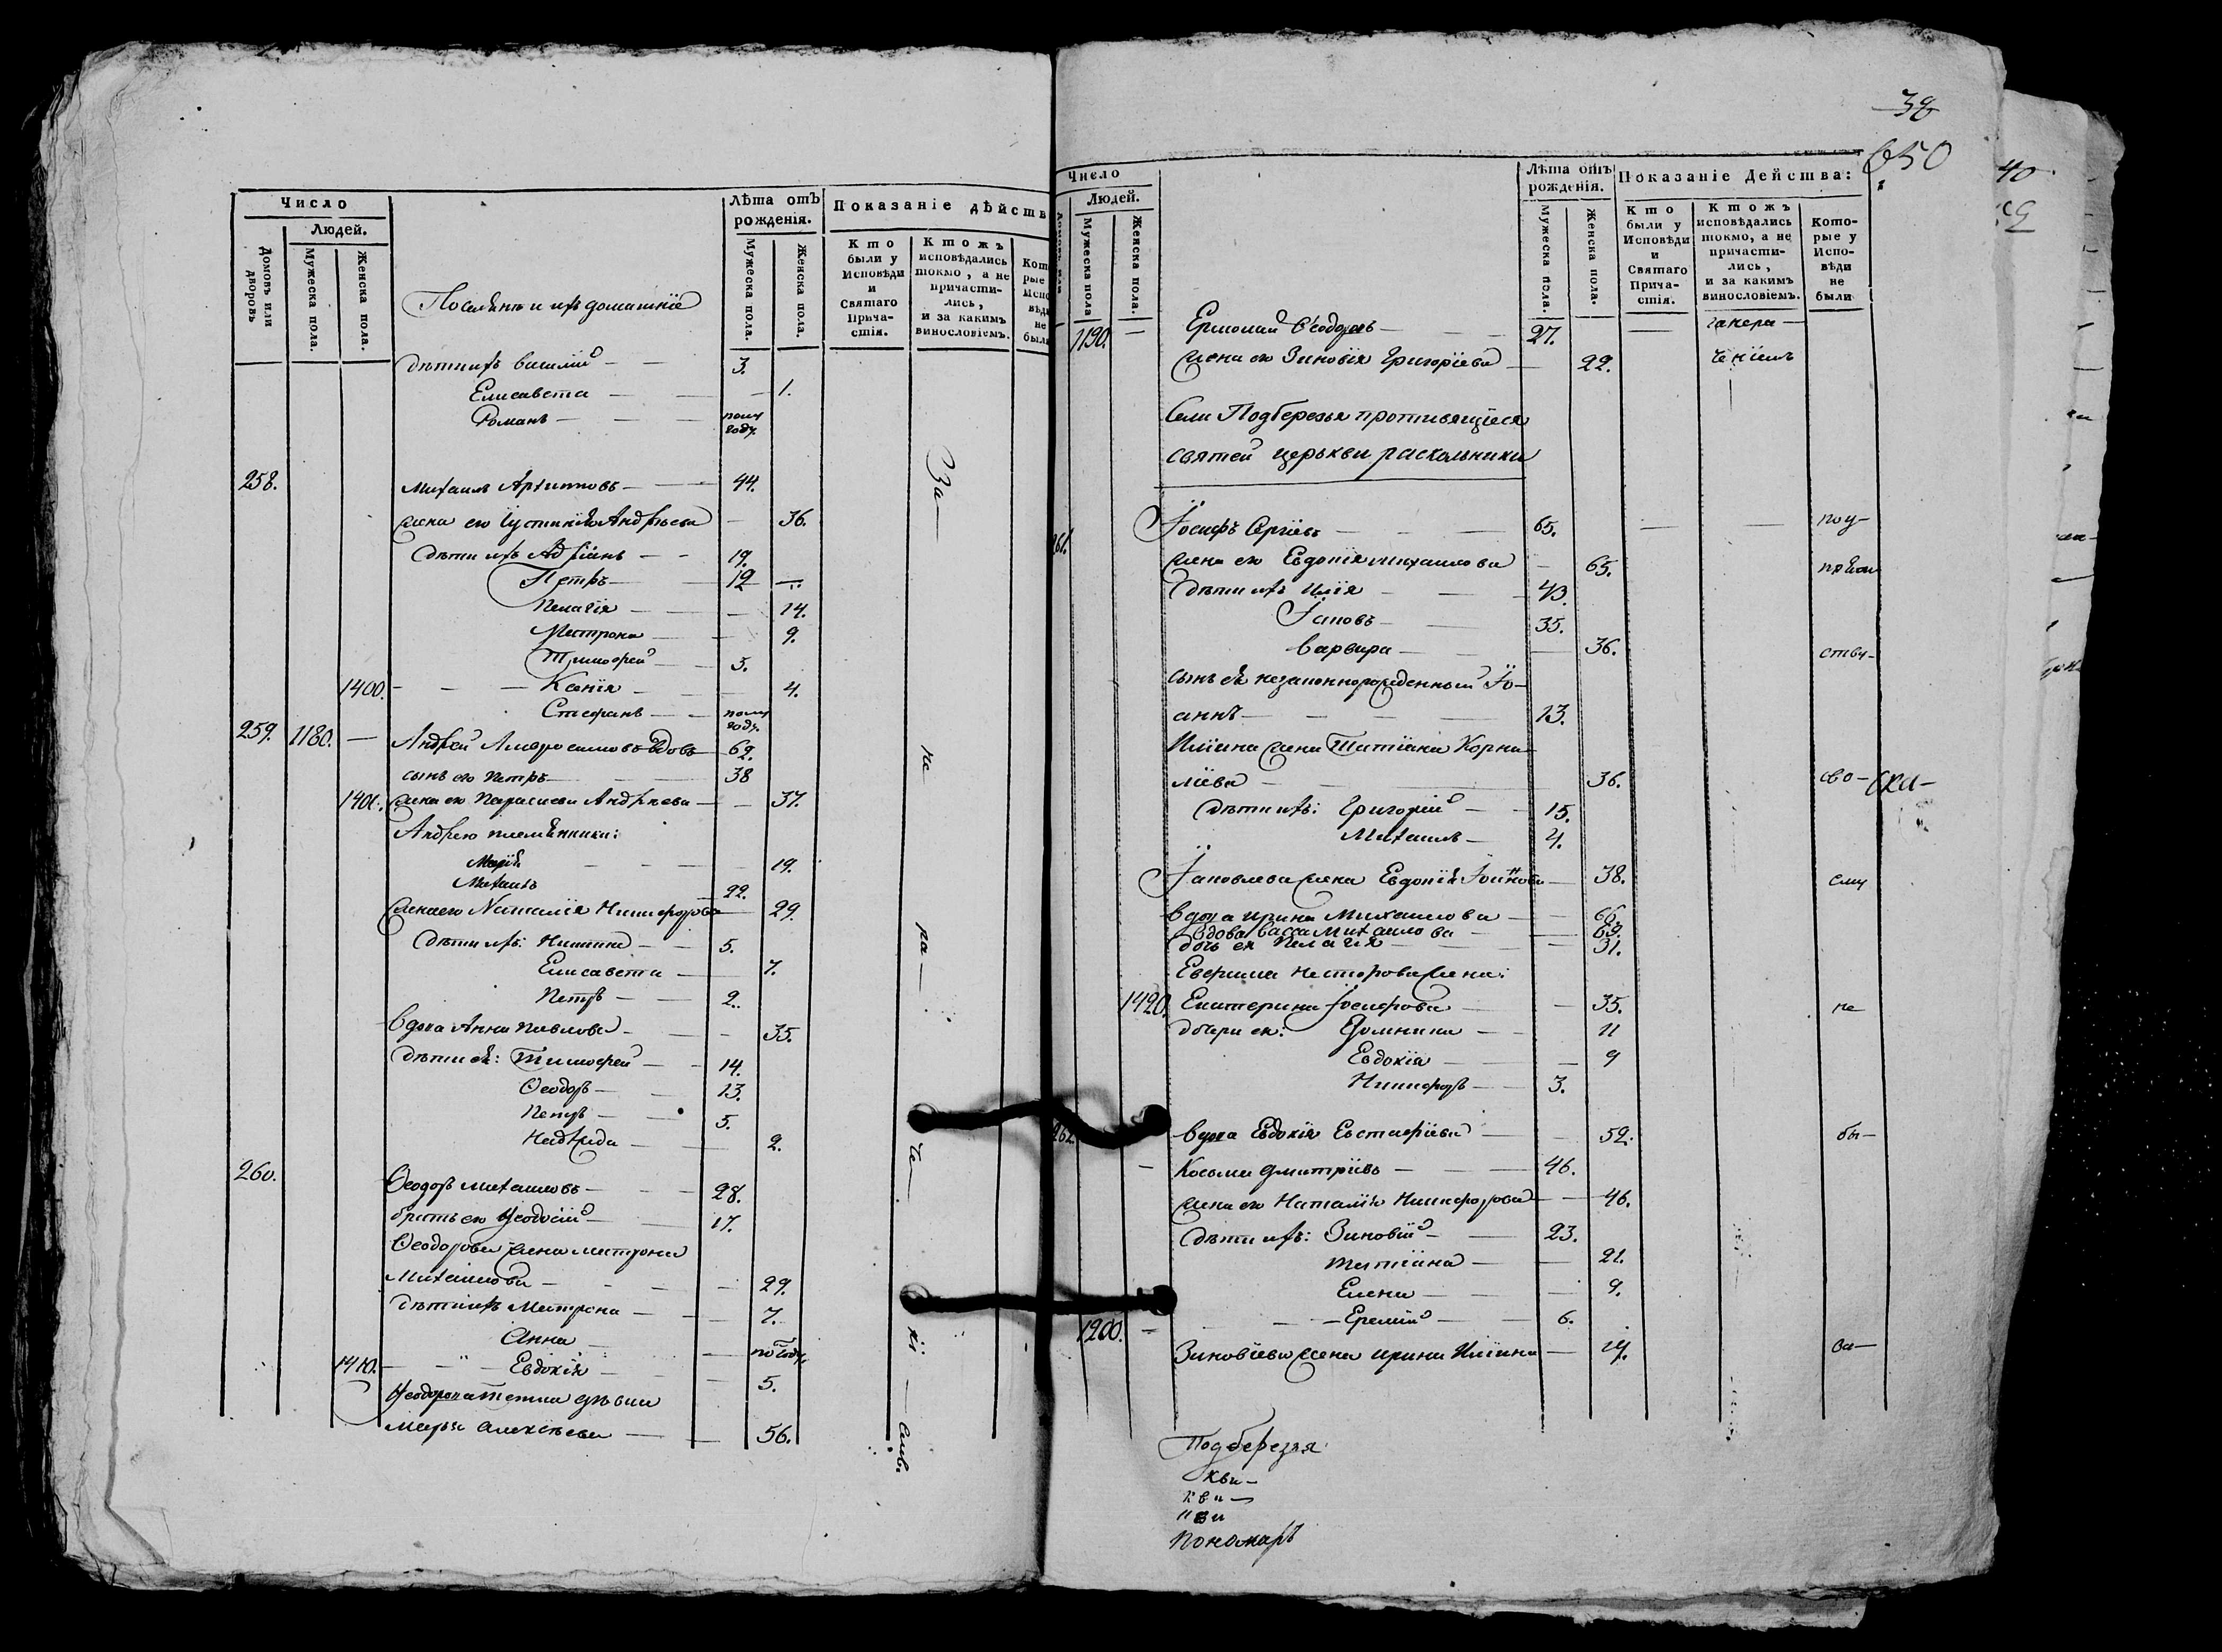 Число
Людей.
Домовъ или дворовъ
Мужеска пола.
Женска пола.
Поселяне и ихъ домашнїе
Лѣта отъ рожденїя.
Мужеска пола.
Женска пола.
Показанїе дѣйств
Кто были у Исповѣди и Святаго Прича- стїя.
Ктожъ исповѣдались токмо, а не причасти- лись, и за какимъ винословїемъ.
дѣти ихъ Василий — 3.
Елисавета — 1.
Романъ — полу году.
258. Михаилъ Архиповъ — 44.
жена его Іустинїя Андрѣева — 36.
дѣти ихъ Адрїанъ — 19.
Петръ — 12 —
Пелагїя — 14.
Матрона — 9.
Тимофей — 5.
1400. — Ксенїя — 4.
Стефанъ — полу году.
259. 1180. — Андрей Амвросимовъ вдовъ 69.
сынъ его Петръ — 38
1401. жена его Параскева Андрѣева — 37.
Андрею племянники:
Марїя — 19.
Михаилъ 22.
жена его Наталїя Никифорова 29.
дѣти ихъ: Никита — 5.
Елисавета — 7.
Петръ — 2.
вдова Анна Павлова — 35.
дѣти ея: Тимофей — 14.
Ѳеодоръ — 13.
Петръ — 5.
2.
260. Ѳеодоръ Михаиловъ — 28.
братъ его Ѳеодосїй — 17.
Ѳеодорова жена Матрона
Михаилова — 29.
дѣти ихъ Матрона — 7.
Анна — по году.
1410. — Евдокїя — 5.
тетка дѣвка
Марья Алексѣева — 56.
За — не ра — че — нї — емъ.
38
650
Число
Людей.
Мужеска пола
Женска пола.
Лѣта отъ рожденїя.
Мужеска пола.
Женска пола.
Показанїе Действа:
Кто были у Исповѣди и Святаго Прича- стїя.
Ктожъ исповѣдались токмо, а не причасти- лись, и за какимъ винословїемъ.
Кото- рые у Испо- вѣди не были
1190. — Ермолай Ѳеодоровъ — 27. —
жена его Зиновїя Григорїева — 22. ченїемъ
Села Подберезья противящїеся
святей церькви раскольники
261. Іосифъ Сергїевъ — 65. — — по у-
жена его Евдокїя Михаилова — 65.
дѣти ихъ Илїя — 43.
Іаковъ — 35.
Варвара — 36. ству-
сынъ ея незаконнорожденный Іо-
аннъ — 13.
Илїина жена Татїана Корни
лїева — 36. сво- ска-
дѣти ихъ: Григорїй — 15.
Михаилъ — 4.
Іаковлева жена Евдокїя Іоаннова — 38. ему
вдова Ирина Михаилова — 66.
вдова Васса Михаилова — 69.
дочь ея Пелагїя — 31.
Несторова жена:
1420. Екатерина Іосифова — 35. не
дочери ея: Домника — 11
Евдокїя — 9
Никифоръ — 3.
262. вдова Евдокїя Евстафїева — 52. бы-
— Косьма Дмитрїевъ — 46.
жена его Наталїя Никифорова — 46.
дѣти ихъ: Зиновїй — 23.
Татїана — 21.
Елена — 9.
1200. — Еремїй — 6.
Зиновїева жена Ирина Илїина — 19. ва-
Подберезья
кви-
кви-
кви
Пономаръ
40